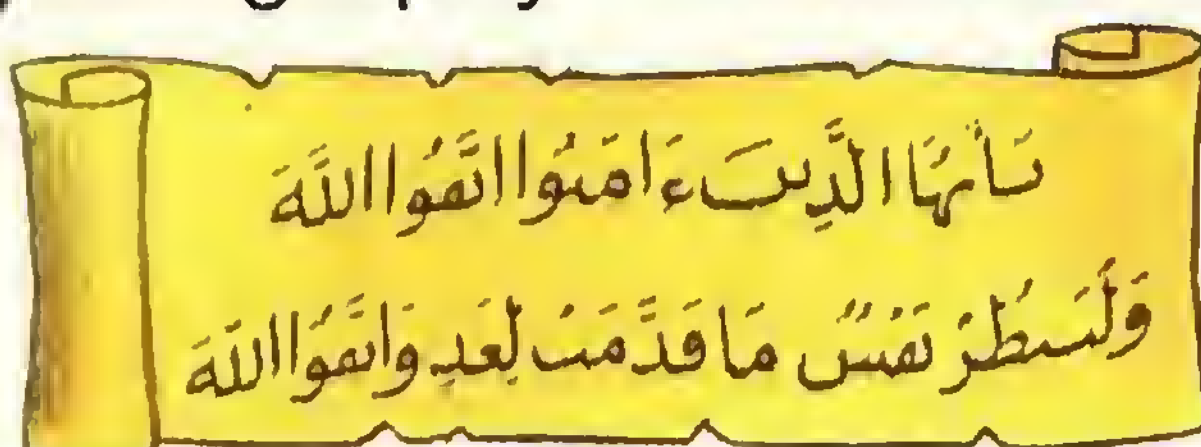 يَأَيُّهَا الَّذِينَ ءَامَنُوا اتَّقُوا اللَّهَ
وَلْتَنظُرْ نَفْسٌ مَا قَدَّمَتْ لِغَدٍ وَاتَّقُوا اللَّهَ